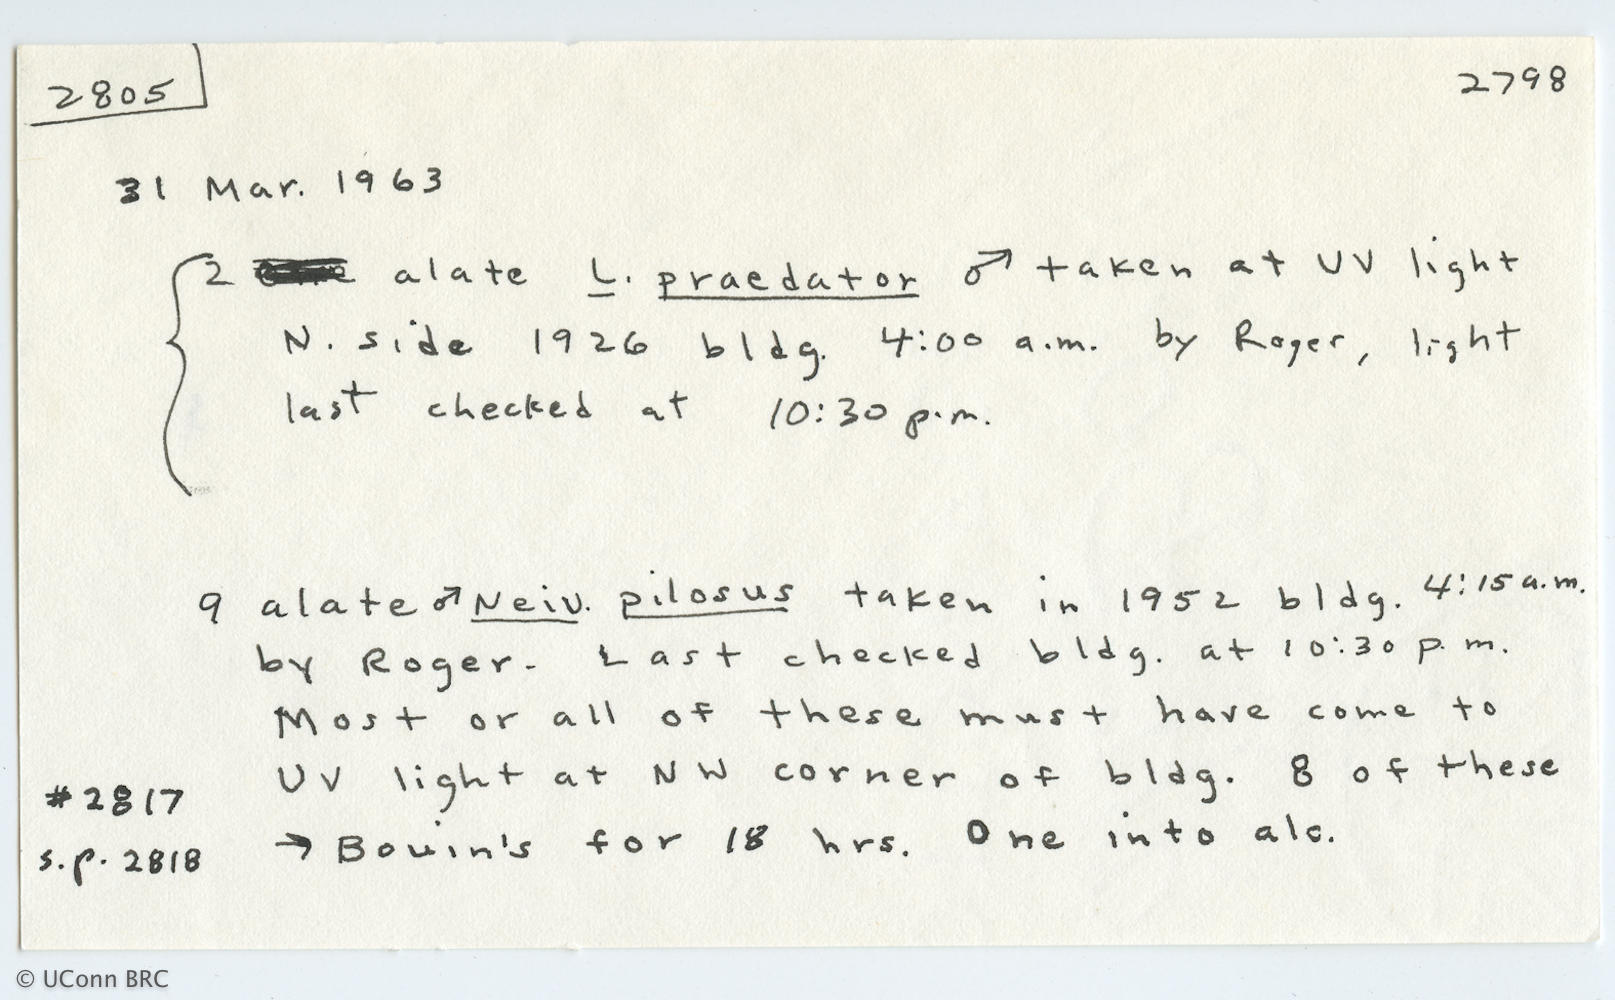 2805
2798
31 Mar. 1963
2 alate L. praedator ♂ taken at UV light
N. side 1926 bldg. 4:00 a.m. by Roger, light
last checked at 10:30 p.m.
9 alate ♂ Neiv. pilosus taken in 1952 bldg. 4:15 a.m.
by Roger. Last checked bldg. at 10:30 p.m.
Most or all of these must have come to
UV light at NW corner of bldg. 8 of these
→ Bouin's for 18 hrs. One into alc.
#2817
s.p. 2818
© UConn BRC